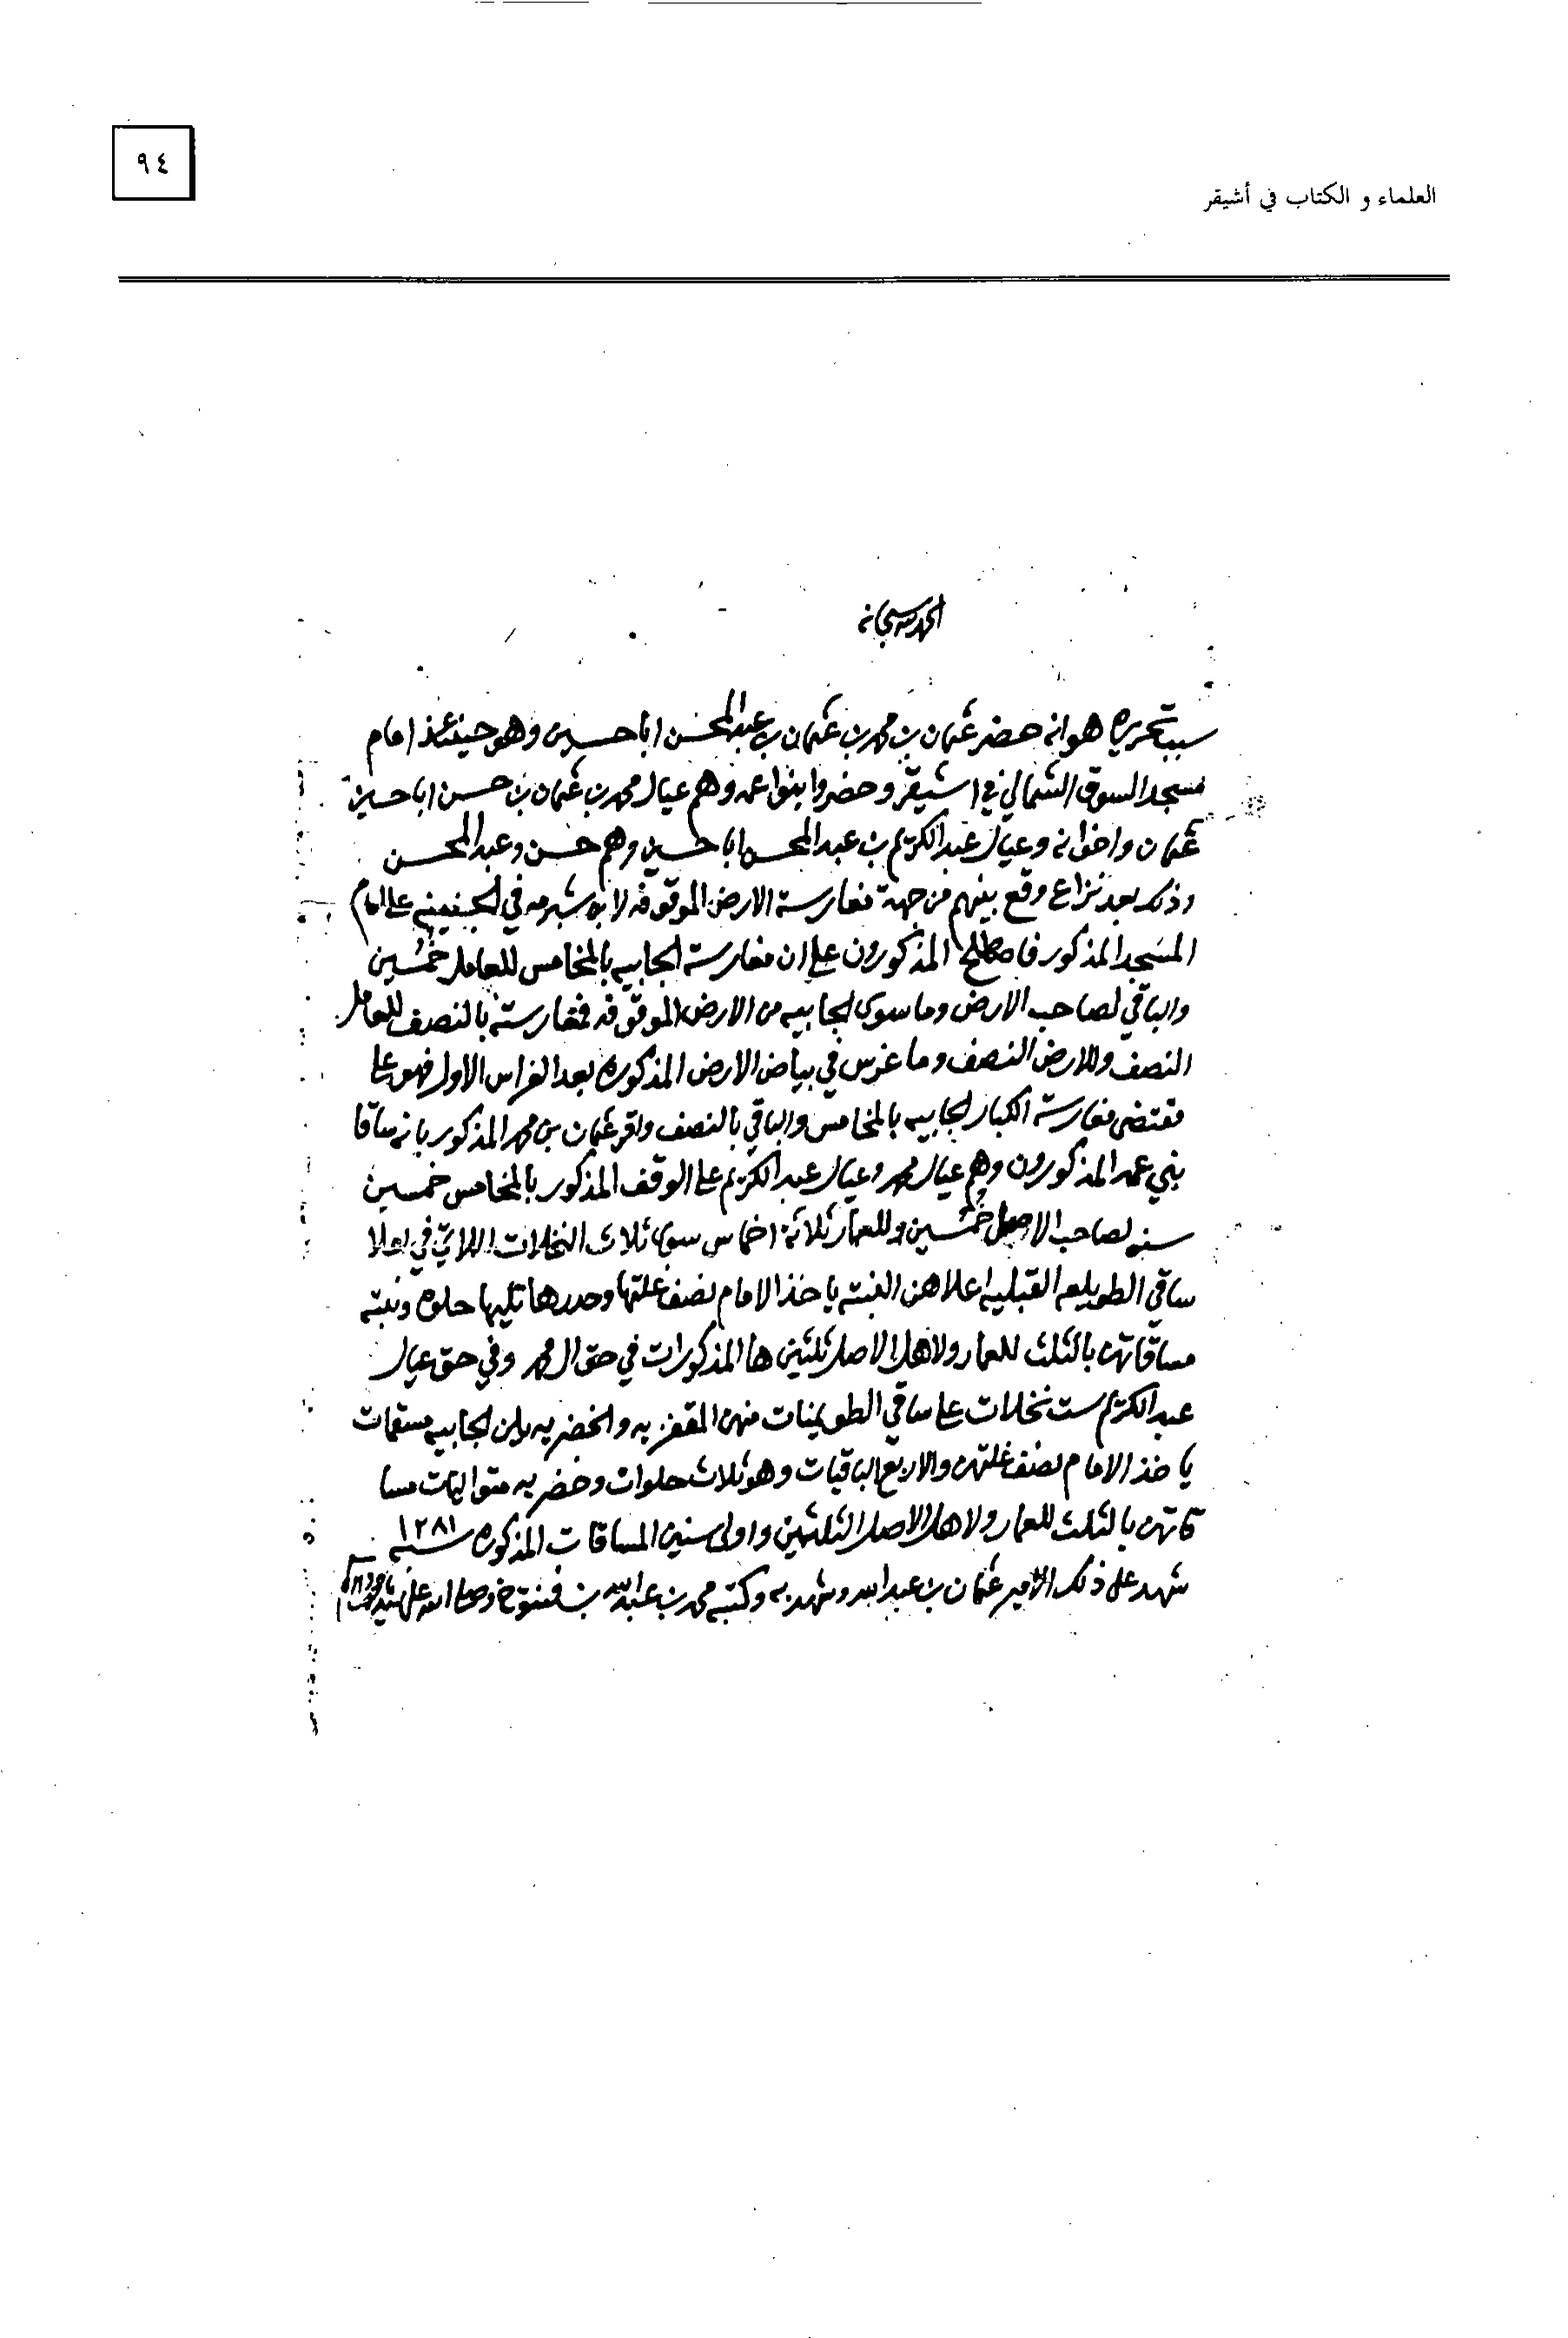 ٩٤
العلماء و الكتاب في أشيقر
الحمد لله سبحانه
سبب تحريره هو انه حضر عثمان بن محمد بن عثمان بن عبدالمحسن اباحسين وهو حينئذ امام
مسجد السوق الشمالي في اشيقر وحضروا بنوا عمه وهم عيال محمد بن عثمان بن حسن اباحسين
عثمان واخوانه وعيال عبدالكريم بن عبدالمحسن اباحسين وهم حسن وعبدالمحسن
وذلك بعد نزاع وقع بينهم من جهة مغارسة الارض الموقوفه لابو شبرمه في على امام
المسجد المذكور فاصطلح المذكورون على ان مغارسة الجابيه بالمخامس للعامل خمسين
والباقي لصاحب الارض وما سوى الجابيه من الارض الموقوفه فمغارسته بالنصف للعامل
النصف وللارض النصف وما غرس في بياض الارض المذكوره بعد الغراس الاول فهو على
مقتضى مغارسة الكبار الجابيه بالمخامس والباقي بالنصف واقر عثمان بن محمد المذكور بانه ساقا
بني عمه المذكورون وهم عيال محمد وعيال عبدالكريم على الوقف المذكور بالمخامس خمسين
سنه لصاحب الاصل خمسين وللعمار ثلاثة اخماس سوى ثلاث النخلات اللاتي في اعلا
ساقي الطويلعه القبليه اعلاهن النبته ياخذ الامام نصف غلتها وحدرها تليها حلوه ونبته
مساقاتهن بالثلث للعمار ولاهل الاصل ثلثين ها المذكورات في حق ال محمد وفي حق عيال
عبدالكريم ست نخلات على ساقي الطوينات منهن المقفزيه والخضريه يلن الجابيه
ياخذ الامام نصف غلتهن والاربع الباقيات وهو ثلاث حلوات وخضريه متواليات مسا
قاتهن بالثلث للعمار ولاهل الاصل الثلثين واولى سنين المساقات المذكوره سنه ١٢٨١
شهد على ذلك الامير عثمان بن عبدالله وشهد به وكتبه محمد بن عبدالله بن فنتوخ وصلى الله على محمد